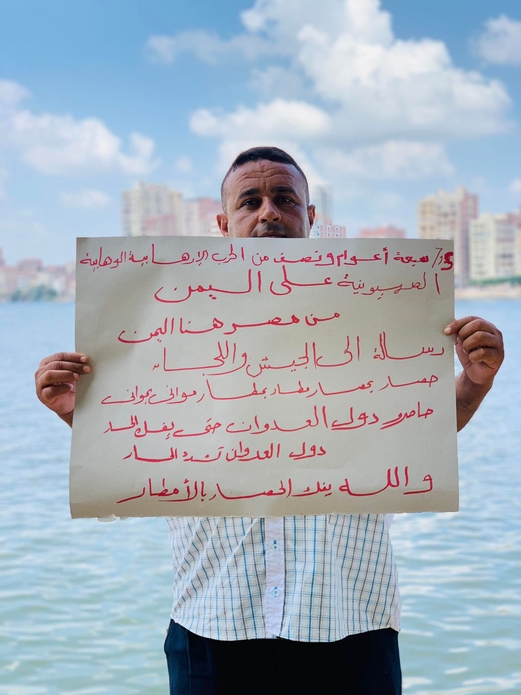 7,5 سبعة أعوام ونصف من الحرب الإرهابية الوهابية
الصهيونية على اليمن
من مصر هنا اليمن
رسالة الى الجيش واللجان
حصار بحصار مطار بمطار موانئ بموانئ
حاصرو دول العدوان حتى يفك الحصار
دول العدوان الحصار
والله يفك الحصار بالأمطار